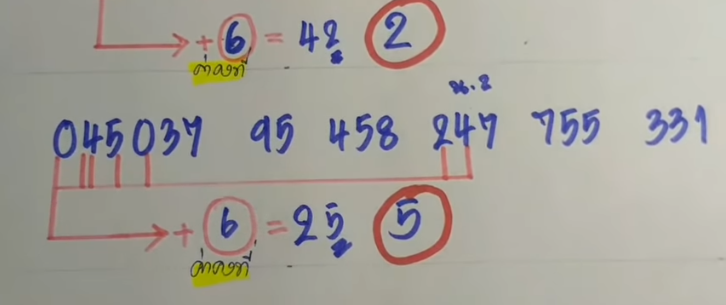 + 6 = 42 2
ค่าคงที่
น.2
045037 95 458 247 755 331
+ 6 = 25 5
ค่าคงที่